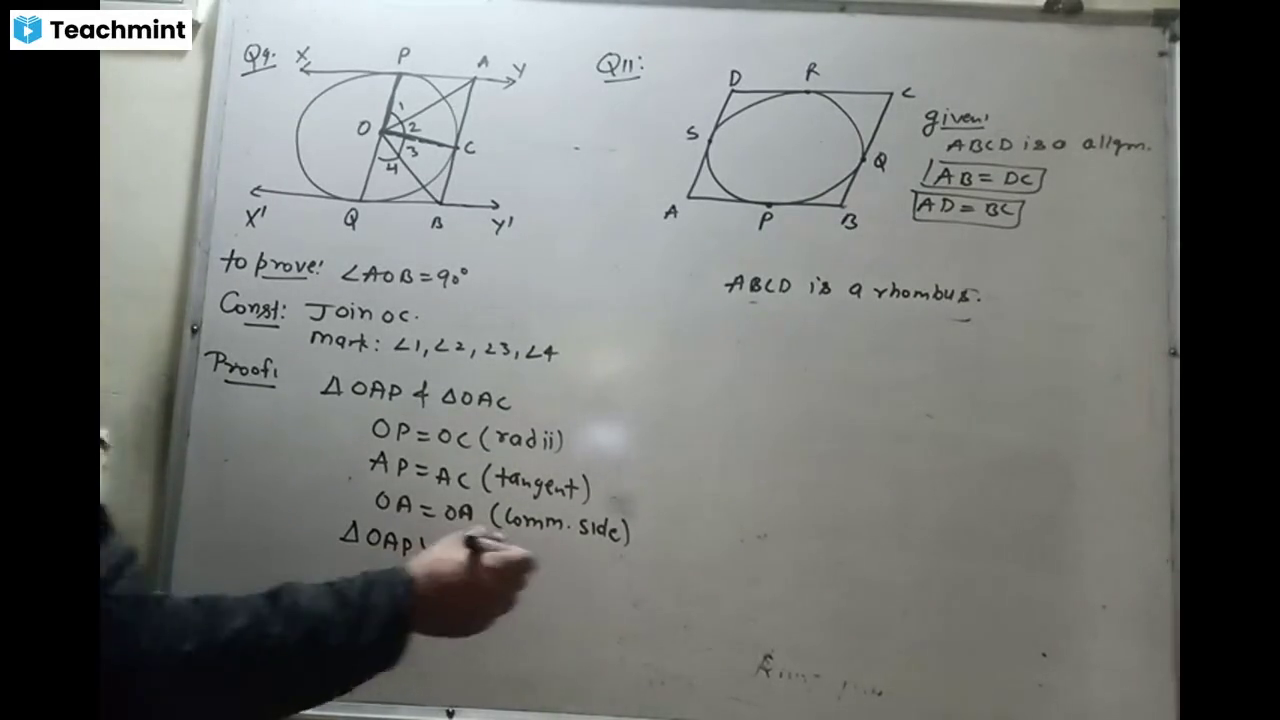 Teachmint
Q9.
X P A Y
O 1 2 3 4 C
X' Q B Y'
to prove: ∠AOB = 90°
Const: Join OC.
mark: ∠1, ∠2, ∠3, ∠4
Proof:
Δ OAP & ΔOAC
OP = OC (radii)
AP = AC (tangent)
OA = OA (Comm. side)
Δ OAP
Q11:
D R C
S Q
A P B
given:
ABCD is a ||gm.
AB = DC
AD = BC
ABCD is a rhombus.